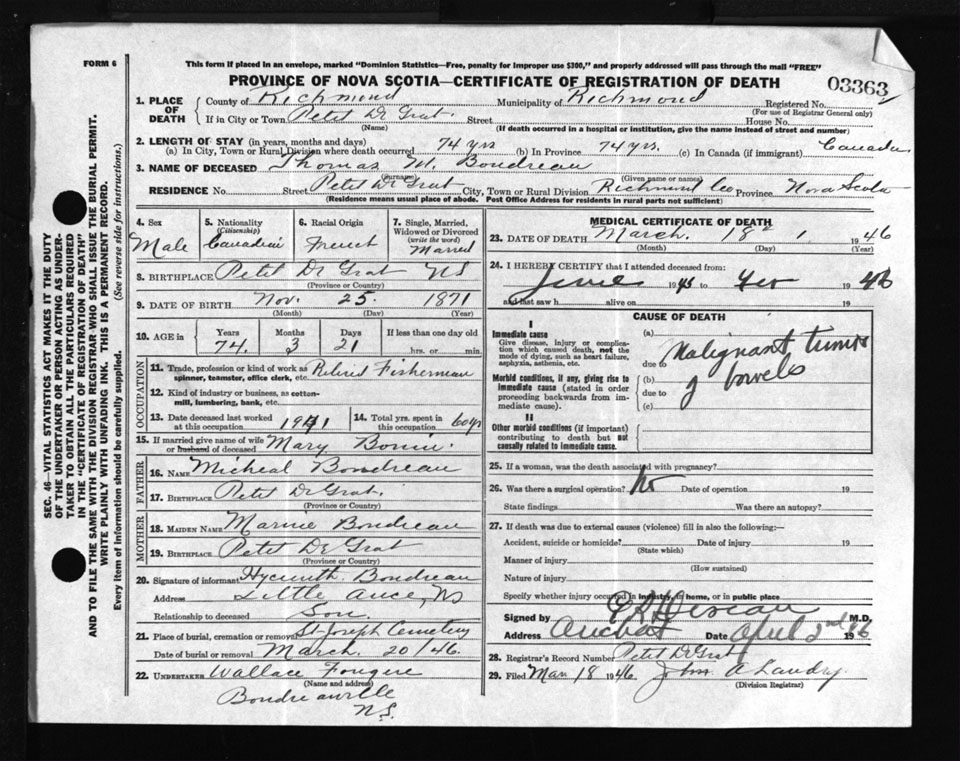 FORM 6
This form if placed in an envelope, marked "Dominion Statistics—Free, penalty for improper use $300," and properly addressed will pass through the mail "FREE"
PROVINCE OF NOVA SCOTIA—CERTIFICATE OF REGISTRATION OF DEATH
03363
1. PLACE OF DEATH { County of Richmond Municipality of Richmond Registered No.
(For use of Registrar General only)
If in City or Town Petit De Grat. Street House No.
(Name) (If death occurred in a hospital or institution, give the name instead of street and number)
2. LENGTH OF STAY (in years, months and days)
(a) In City, Town or Rural Division where death occurred 74 yrs (b) In Province 74 yrs. (c) In Canada (if immigrant) Canada
3. NAME OF DECEASED Thomas M. Boudreau
(Surname) (Given name or names)
RESIDENCE No. Street Petit De Grat City, Town or Rural Division Richmond Co Province Nova Scotia
(Residence means usual place of abode. Post Office Address for residents in rural parts not sufficient)
4. Sex
Male
5. Nationality
(Citizenship)
Canadian
6. Racial Origin
French
7. Single, Married, Widowed or Divorced
(write the word)
Married
8. BIRTHPLACE Petit De Grat NS
(Province or Country)
9. DATE OF BIRTH Nov. 25. 1871
(Month) (Day) (Year)
10. AGE in { Years Months Days If less than one day old
74. 3 21 hrs. or min.
OCCUPATION
11. Trade, profession or kind of work as spinner, teamster, office clerk, etc. Retired Fisherman
12. Kind of industry or business, as cotton-mill, lumbering, bank, etc.
13. Date deceased last worked at this occupation 1941
14. Total yrs. spent in this occupation 60 yrs
15. If married give name of wife or husband of deceased Mary
FATHER
16. NAME Micheal Boudreau
17. BIRTHPLACE Petit De Grat.
(Province or Country)
MOTHER
18. MAIDEN NAME Boudreau
19. BIRTHPLACE Petit De Grat
(Province or Country)
20. Signature of informant Hycinth. Boudreau
Address Little Ance, NS
Relationship to deceased Son.
21. Place of burial, cremation or removal St Joseph Cemetery
Date of burial or removal March 20/46.
22. UNDERTAKER Wallace Fougere
(Name and address)
Boudreauville
N.S.
MEDICAL CERTIFICATE OF DEATH
23. DATE OF DEATH March. 18th 1946
(Month) (Day) (Year)
24. I HEREBY CERTIFY that I attended deceased from:
June 1945 to 1946
and last saw h alive on 19
CAUSE OF DEATH
I
Immediate cause
Give disease, injury or complication which caused death, not the mode of dying, such as heart failure, asphyxia, asthenia, etc.
(a) Malignant tumor
due to
Morbid conditions, if any, giving rise to immediate cause (stated in order proceeding backwards from immediate cause).
(b) of bowels
due to
(c)
II
Other morbid conditions (if important) contributing to death but not causally related to immediate cause.
25. If a woman, was the death associated with pregnancy?
26. Was there a surgical operation? No Date of operation 19
State findings Was there an autopsy?
27. If death was due to external causes (violence) fill in also the following:—
Accident, suicide or homicide? Date of injury 19
(State which)
Manner of injury
(How sustained)
Nature of injury
Specify whether injury occurred in industry, in home, or in public place
Signed by M.D.
Address Arichat Date April 2nd 1946
28. Registrar's Record Number Petit De Grat
29. Filed Mar 18 1946 John A Landry
(Division Registrar)
SEC. 46—VITAL STATISTICS ACT MAKES IT THE DUTY OF THE UNDERTAKER OR PERSON ACTING AS UNDERTAKER TO OBTAIN ALL THE PARTICULARS REQUIRED IN THE "CERTIFICATE OF REGISTRATION OF DEATH" AND TO FILE THE SAME WITH THE DIVISION REGISTRAR WHO SHALL ISSUE THE BURIAL PERMIT.
WRITE PLAINLY WITH UNFADING INK. THIS IS A PERMANENT RECORD.
Every item of information should be carefully supplied. (See reverse side for instructions.)